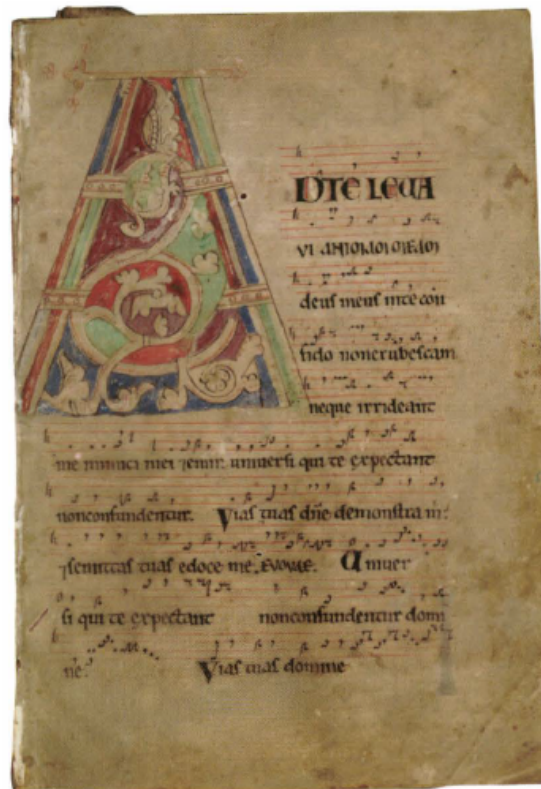 A DTE LEVA
VI ANIMAM MEAM
deus meus inte con
fido non erubescam
neque irrideant
me inimici mei ⁊enim universi qui te expectant
nonconfundentur. Vias tuas dñe demonstra m
⁊semitas tuas edoce me. EVOVAE. Univer
si qui te expectant nonconfundentur domi
ne. Vias tuas domine